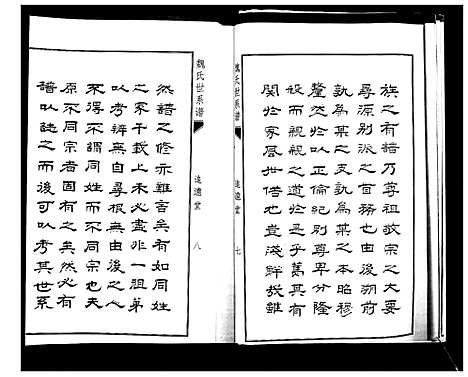 族之有譜乃尊祖敬宗之大要
尋源别派之首務也由後溯前
孰為某之支孰為某之昭穆
釐然於以正倫紀别尊卑分隆
殺而親親之道於是乎篤其有
關於家風世俗也豈淺鮮哉雖
魏氏世系譜
追遠堂
七
然譜之修亦難言矣有如同姓
之家千載上未必盡非一祖弟
以考辨無自尋根無由後之人
不得不謂同姓而不同宗也夫
原不同宗者固有之矣然必有
譜以誌之而後可以考其世系
魏氏世系譜
追遠堂
八